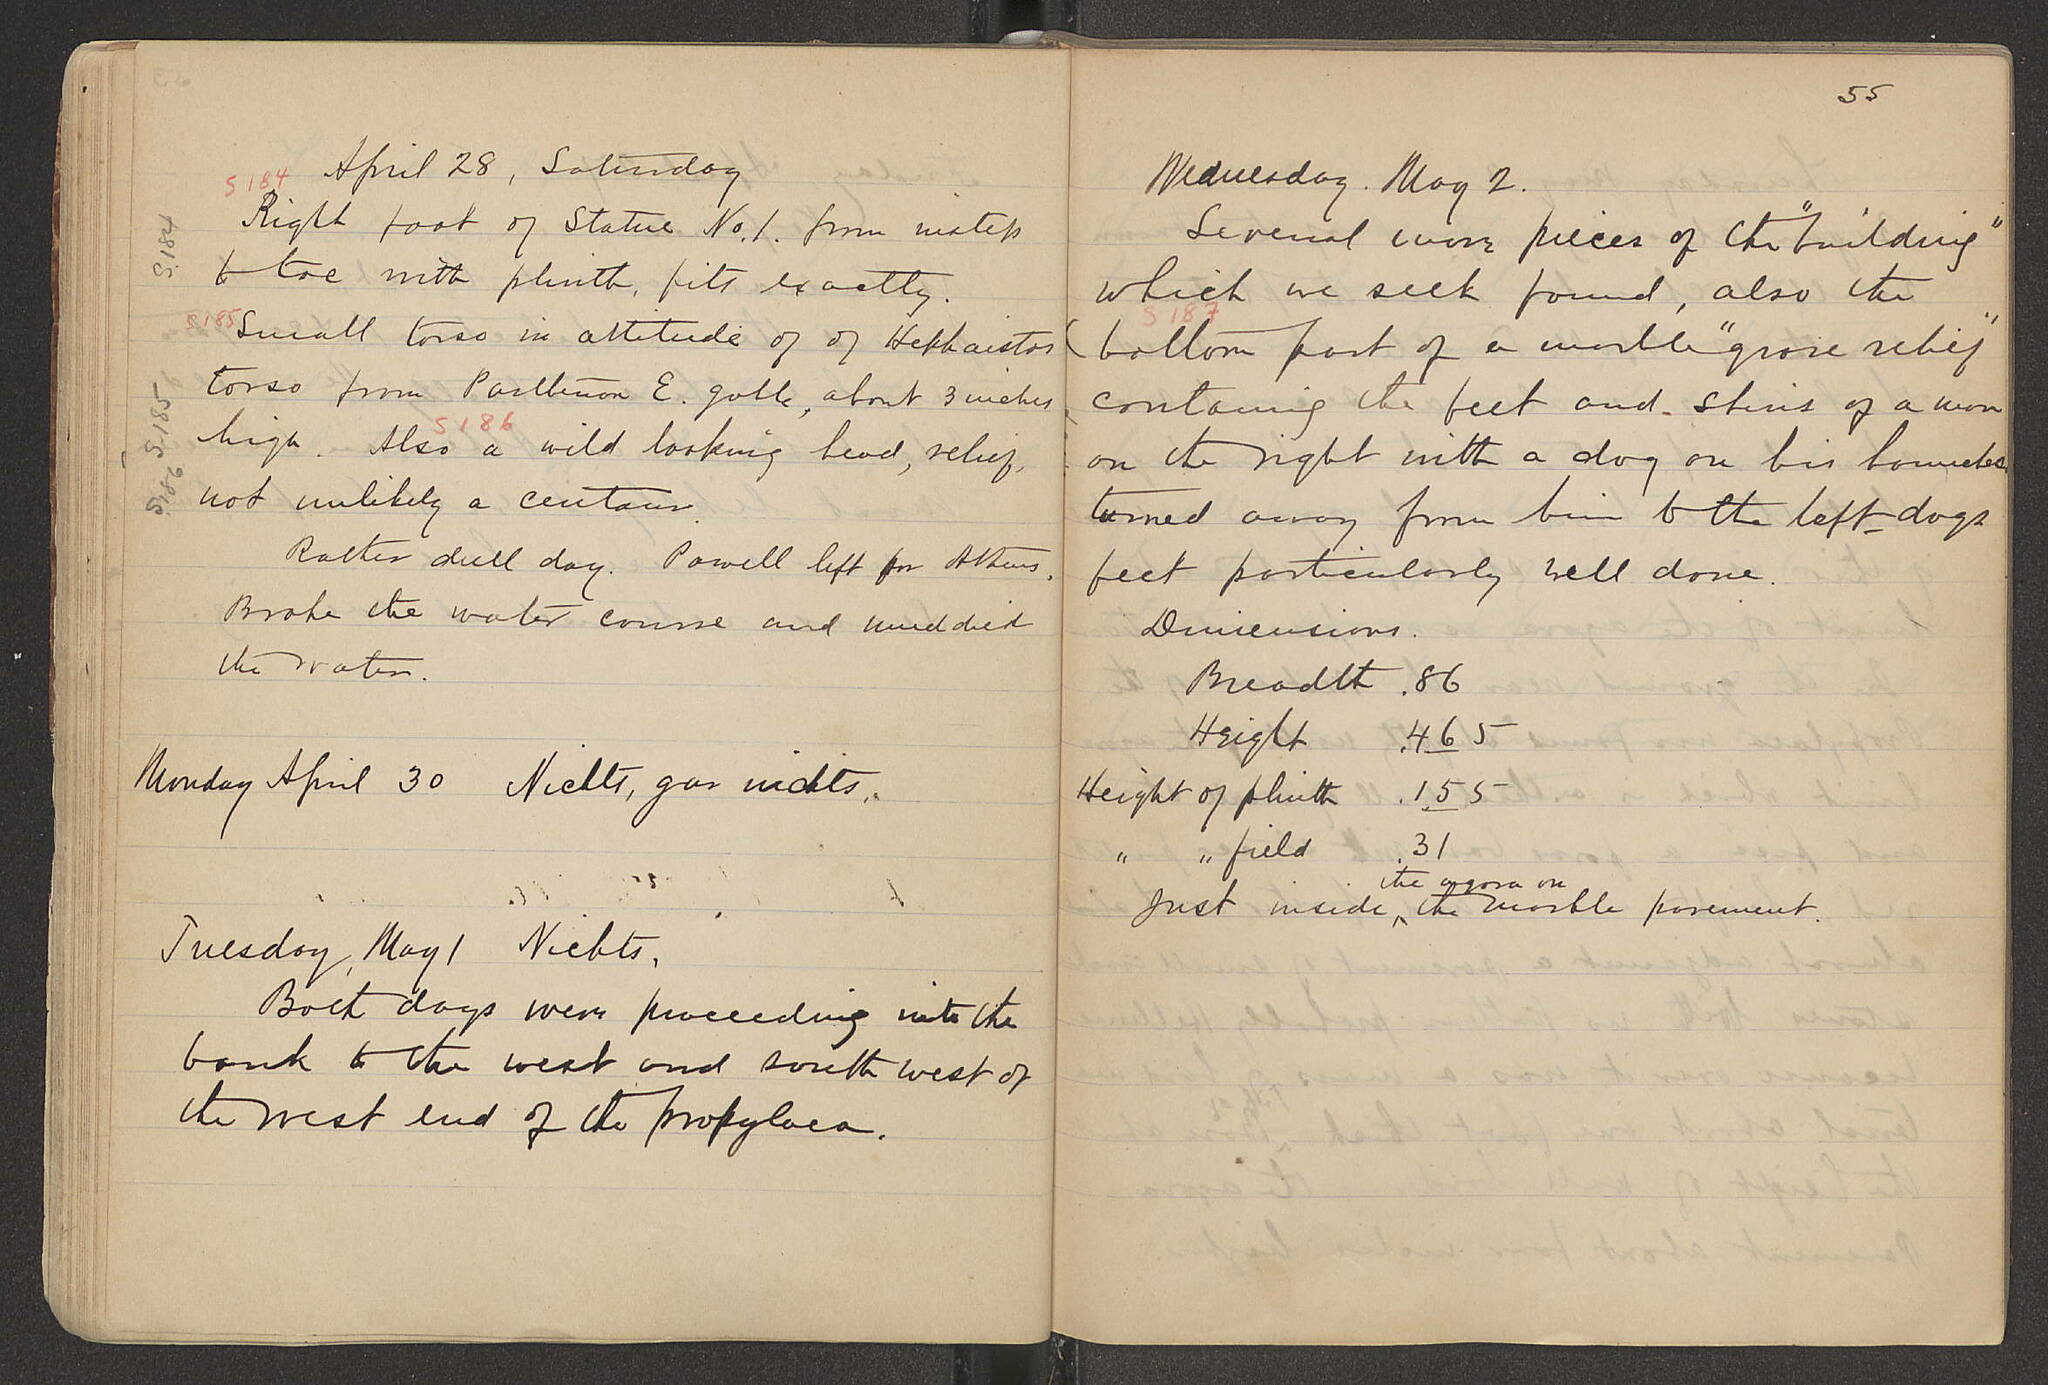 April 28, Saturday
S 184
Right foot of Statue No. 1. from instep
S.184
to toe with plinth, fits exactly.
S 185 Small torso in attitude of of Hephaistos
torso from Parthenon E. gable, about 3 inches
S.185
S 186
high. Also a wild looking head, relief,
S.186
not unlikely a centaur.
Rather dull day. Powell left for Athens.
Broke the water course and muddied
the water.
Monday April 30 Nichts, gar nichts.
Tuesday, May 1 Nichts.
Both days were proceeding into the
bank to the west and south west of
the west end of the propylaea.
55
Wednesday. May 2.
Several more pieces of the "building"
which we seek found, also the
S 187
(bottom part of a marble "grave relief"
containing the feet and shins of a man
on the right with a dog on his haunches
turned away from him to the left - dogs
feet particularly well done.
Dimensions.
Breadth .86
Height .465
Height of plinth .155
" " field .31
the agora on
Just inside ^ the marble pavement.